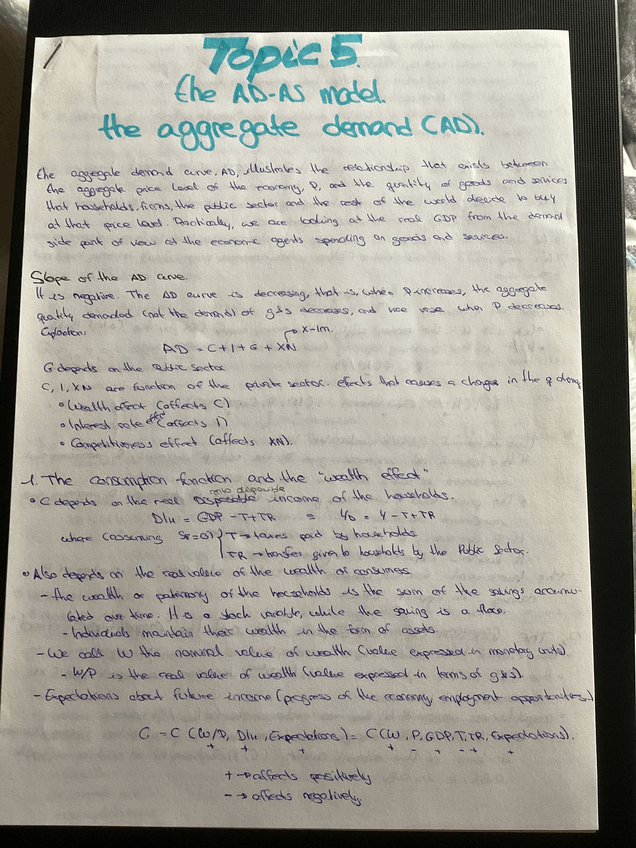 Topic 5.
the AD-AS model.
the aggregate demand (AD).
the aggregate demand curve, AD, illustrates the relationship that exists between
the aggregate price level of the economy, P, and the quantity of goods and services
that households, firms, the public sector and the rest of the world decide to buy
at that price level. Practically, we are looking at the real GDP from the demand
side part of view at the economic agents spending on goods and services.
Slope of the AD curve.
It is negative. The AD curve is decreasing, that is, when P increases, the aggregate
quality demanded (not the demand) of g&s decreases, and vice verse when P decreases.
X-Im.
AD = C+I+G+XN
G depends on the public sector
C, I, XN are function of the private sector. effects that causes a change in the q demq
• Wealth effect (affects C)
• Interest rate effect (affects I)
• Competitiveness effect (affects XN).
1. The consumption function and the "wealth effect"
• C depends on the real disposible income of the households.
DIu = GDP - T + TR = Yd = Y - T + TR
where (assuming Sf=0) { T → taxes paid by households.
TR → transfer given to households by the Public Sector.
• Also depends on the real value of the wealth of consumers
- the wealth or patrimony of the households is the sum of the savings accumu-
lated over time. It is a stock variable, while the saving is a flow.
- Individuals maintain their wealth in the form of assets.
- We call W the nominal value of wealth (value expressed in monetary units)
- W/P is the real value of wealth (value expressed in terms of g&s)
- Expectations about future income (progress of the economy, employment opportunities)
C = C (W/P, DIu, Expectations) = C(W, P, GDP, T, TR, Expectations).
+ + + + - + - + +
+ → affects positively
- → affects negatively.